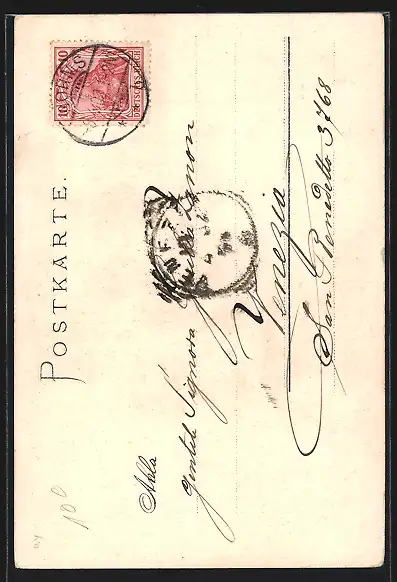 POSTKARTE.
10 10
DEUTSCHES REICH
WORMS
Alla
Gentile Signora
Venezia
San Benedetto 3768